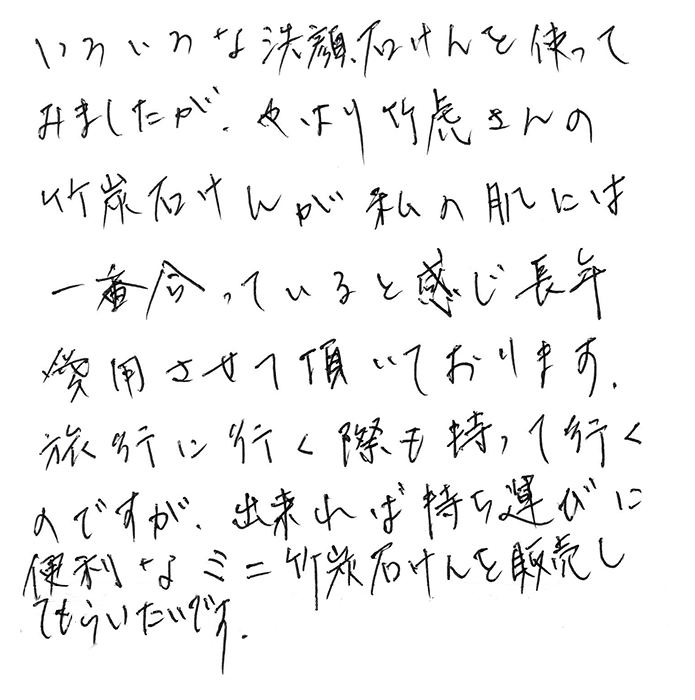 いろいろな洗顔石けんを使って
みましたが、やはり竹虎さんの
竹炭石けんが私の肌には
一番合っていると感じ長年
愛用させて頂いております。
旅行に行く際も持って行く
のですが、出来れば持ち運びに
便利なミニ竹炭石けんを販売し
てもらいたいです。